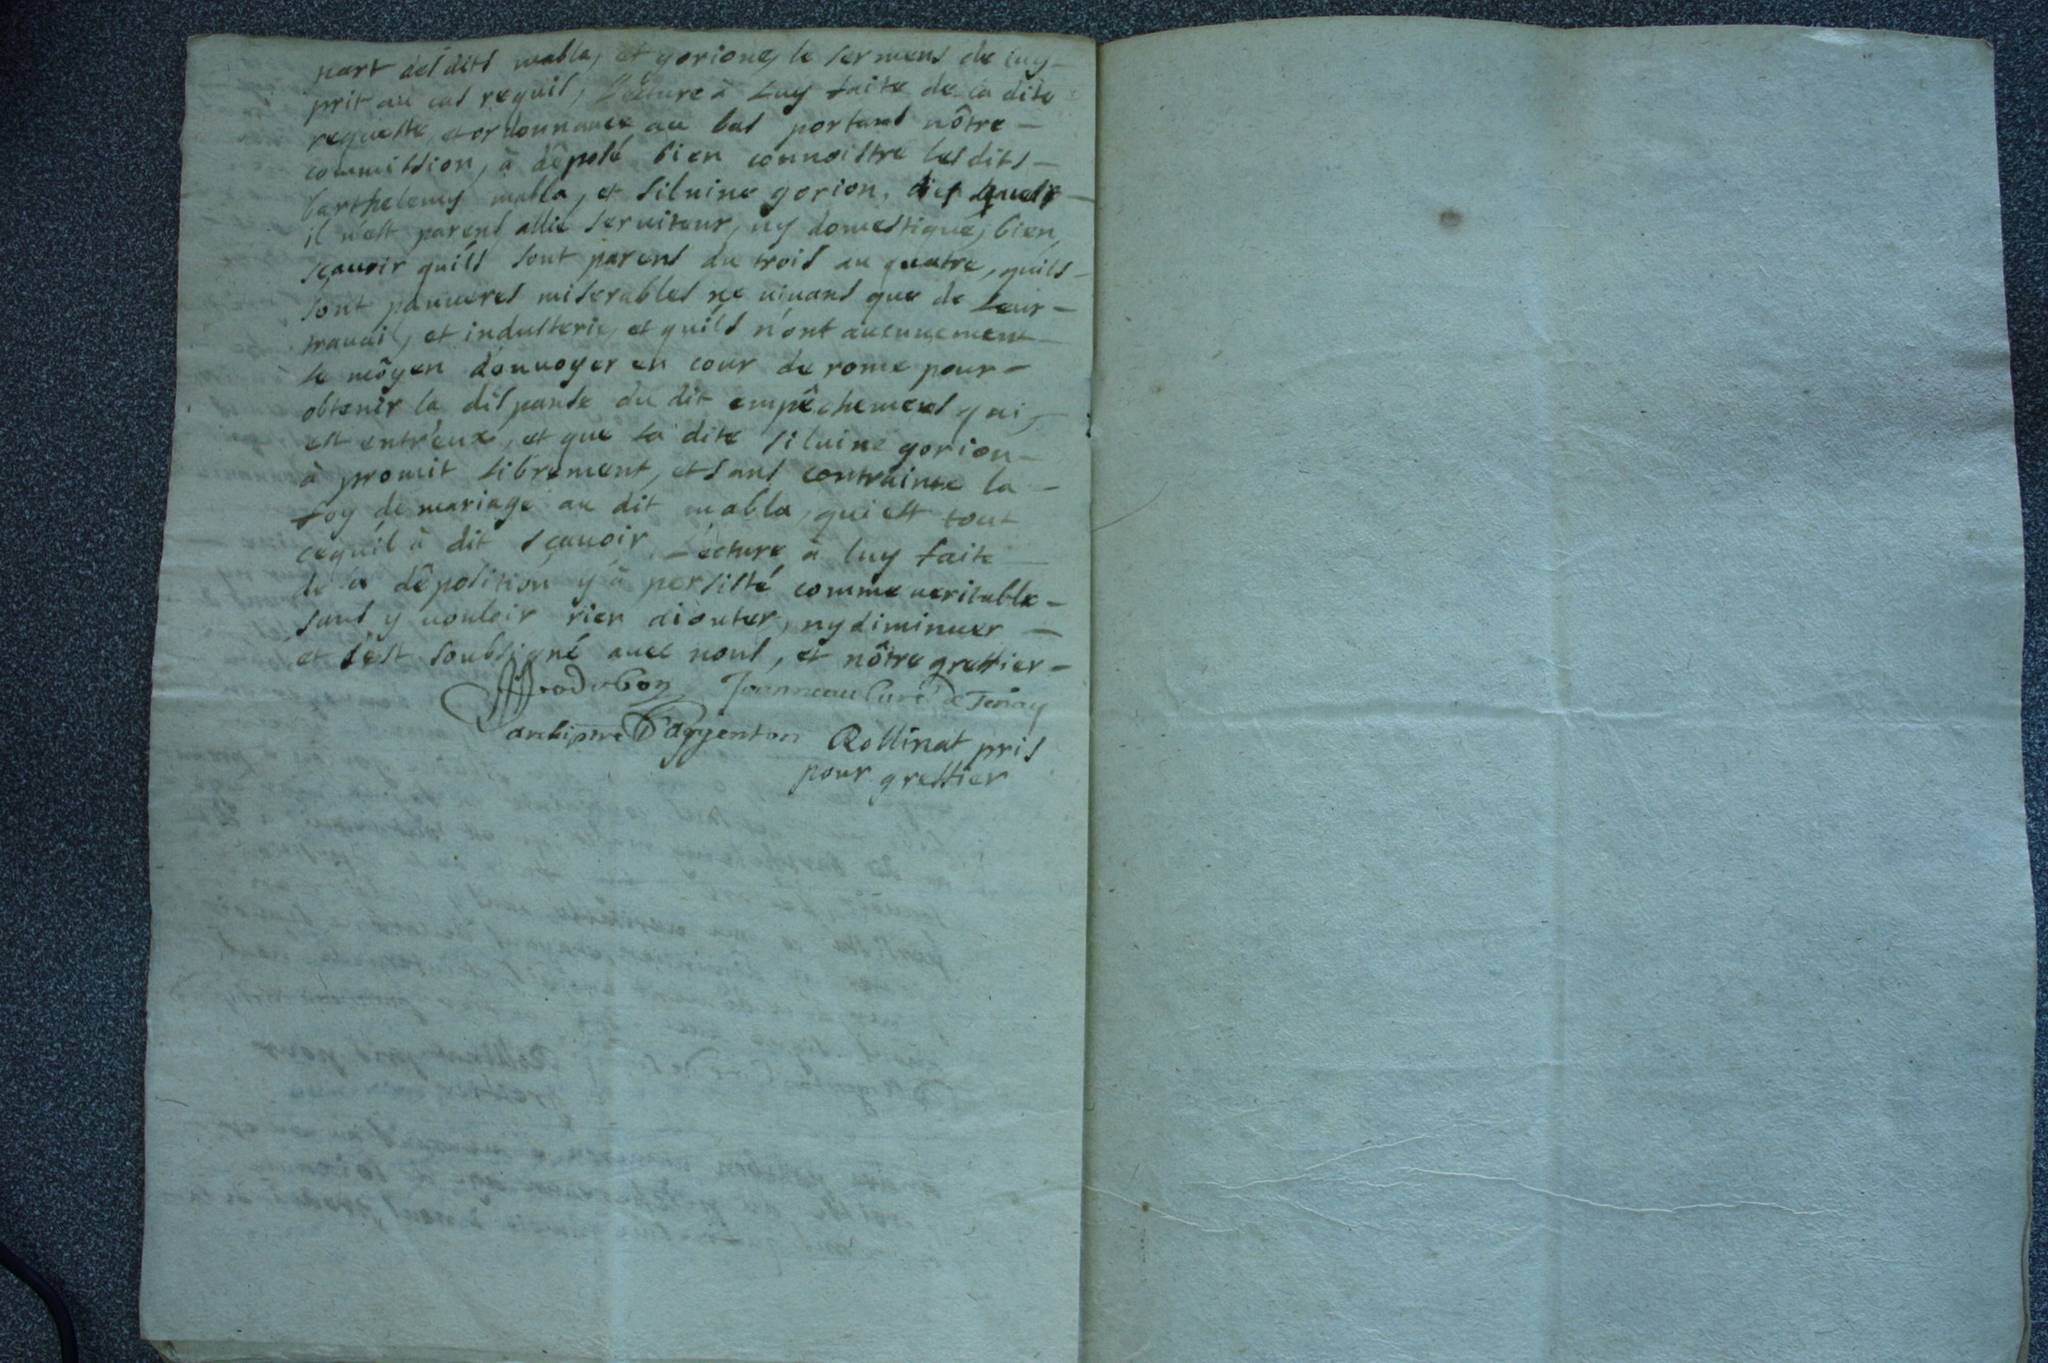 part desdits mabla, et gorione, le serment de luy
prit au cas requis, Lecture à Luy faite de la dite
requeste, et ordonnance au bas portant nôtre
commission, à dêposé bien connoistre lesdits
barthelemy mabla, et silvine gorion, des quels
il n'est parent allié serviteur, ny domestique, bien
sçavoir quils sont parens du trois au quatre, quils
sont pauvres miserables ne vivans que de leur
travail, et industerie, et quils n'ont aucunement
le môyen d'anvoyer en cour de rome pour
obtenir la dispanse du dit empêchement qui
est entr'eux, et que la dite silvine gorion
à promit librement, et sans contrainte la
foy de mariage au dit mabla, qui est tout
cequil à dit sçavoir Lecture à luy faite
de sa dêposition y à persisté comme veritable
sans y vouloir rien aiouter, ny diminuer
et s'est soubsigné avec nous, et nôtre greffier
Joanneau Curé de Tenay
archiptre D'argenton Rollinat pris
pour greffier